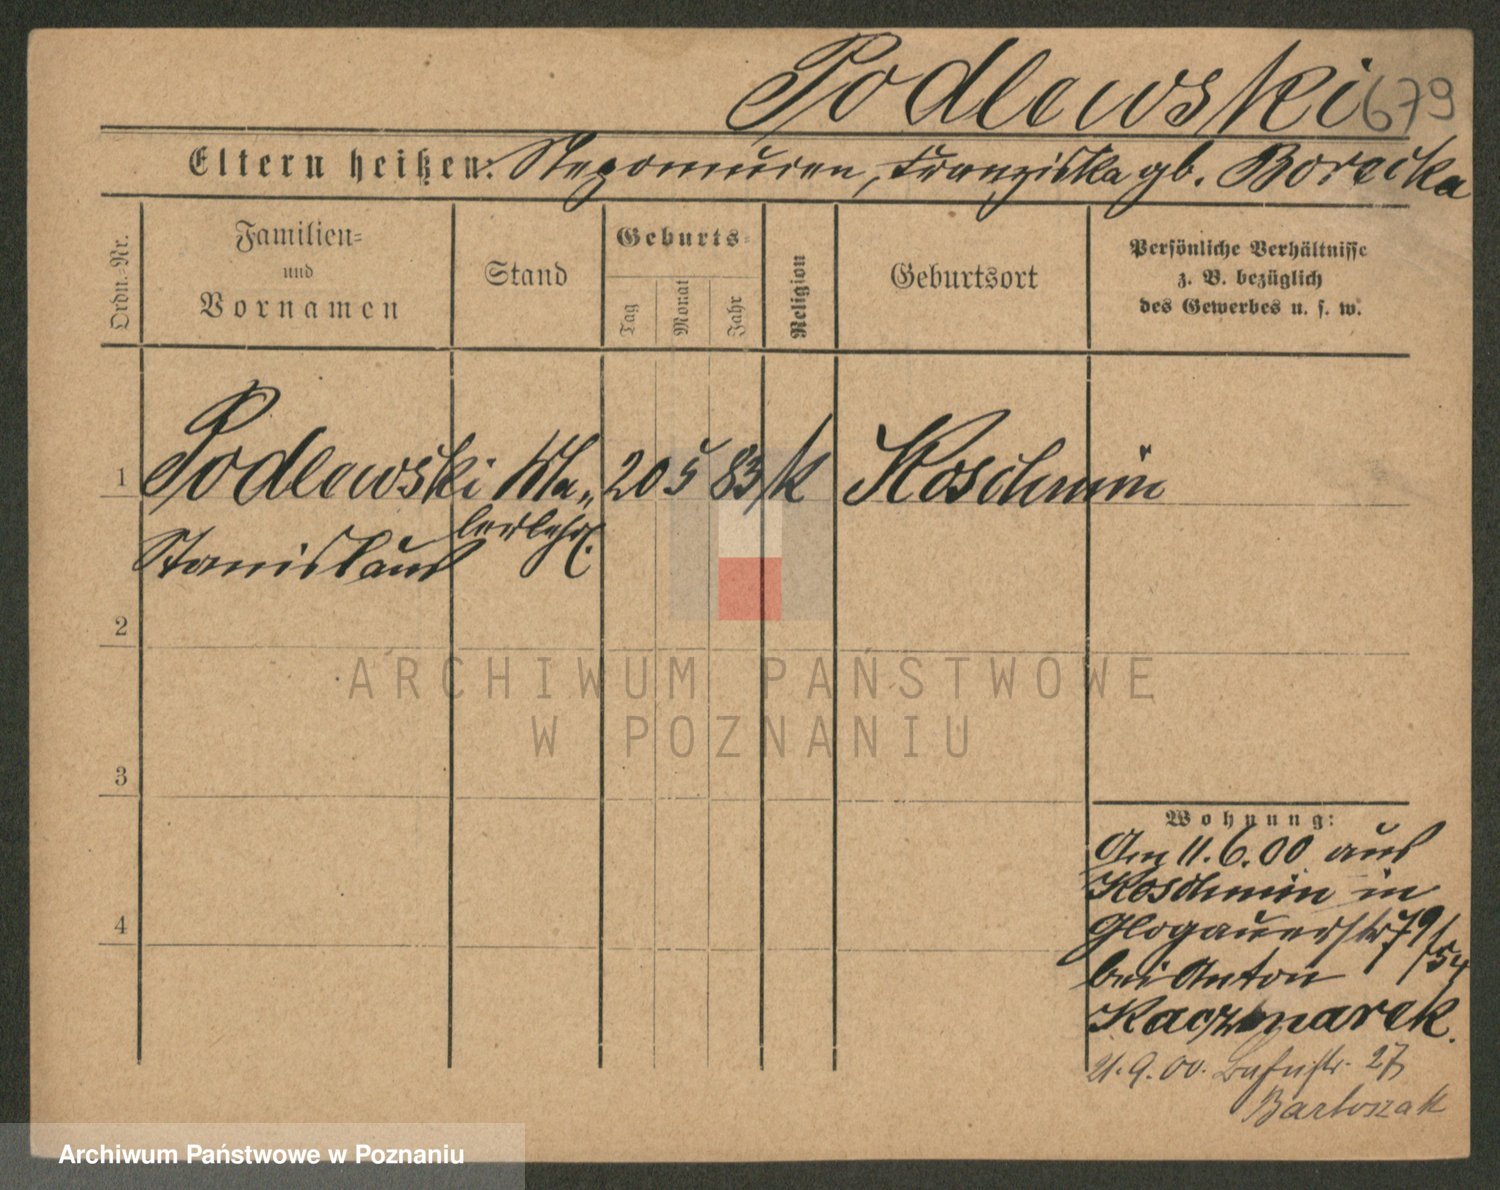 Podlewski 679
Eltern heißen: Nepomucen, Franziska gb. Borecka
Ordn.-Nr.
Familien-
und
Vornamen
Stand
Geburts-
Tag
Monat
Jahr
Religion
Geburtsort
Persönliche Verhältnisse
z. B. bezüglich
des Gewerbes u. s. w.
1 Podlewski Ma- 20 5 83 k Koschmin
Stanislaus lerlehrl.
2
3
4
Wohnung:
Am 11.6.00 aus
Koschmin in
Glogauerstr 79/54
bei Anton
Kaczmarek.
21.9.00. 27
Bartoszak
ARCHIWUM PAŃSTWOWE
W POZNANIU
Archiwum Państwowe w Poznaniu